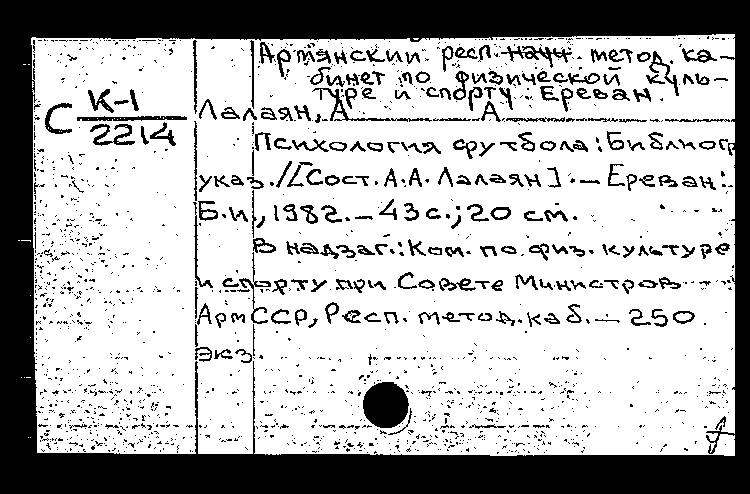 Армянский респ. научн. метод. ка-
бинет по физической куль-
туре и спорту. Ереван.
С К-1
2214
Лалаян, А А
Психология футбола: Библиогр
указ. /[Сост. А.А. Лалаян]. — Ереван:
Б.и., 1982. — 43 с.; 20 см.
В надзаг.: Ком. по физ. культуре
и спорту при Совете Министров
АрмССР, Респ. метод. каб. — 250
экз.